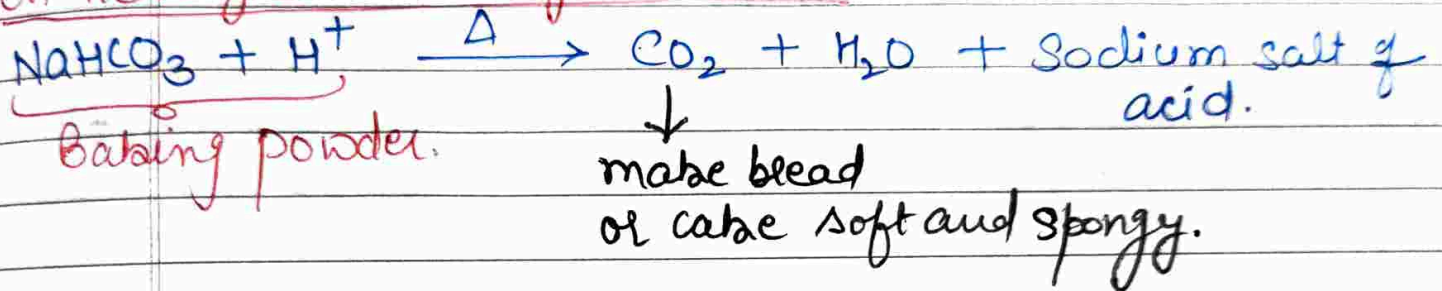 NaHCO₃ + H⁺ —Δ→ CO₂ + H₂O + Sodium salt of
acid.
Baking powder.
↓
make bread
or cake soft and spongy.